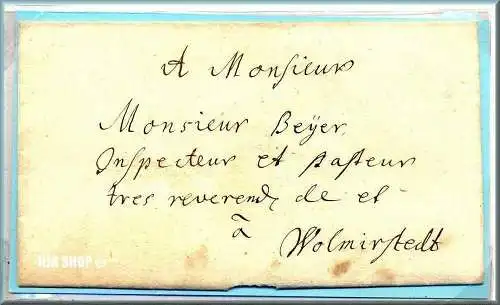 A Monsieur
Monsieur Beÿer
Inspecteur et Pasteur
tres reverend, de et
a
Wolmirstedt
HJK SHOP